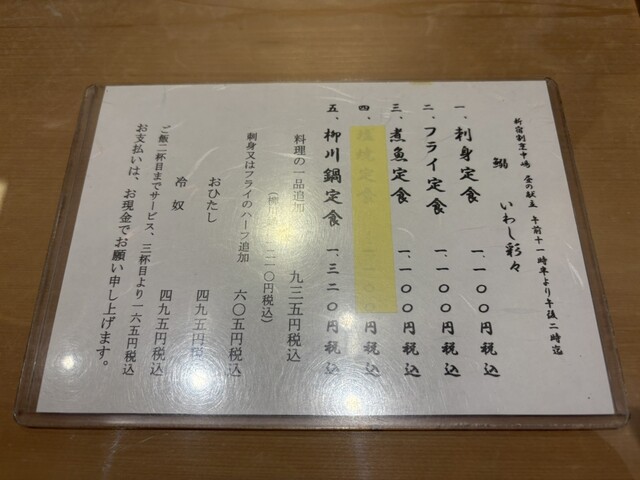 新宿割烹中嶋 昼の献立 午前十一時半より午後二時迄
鰯 いわし彩々
一、刺身定食 一、一〇〇円税込
二、フライ定食 一、一〇〇円税込
三、煮魚定食 一、一〇〇円税込
四、塩焼定食 一、一〇〇円税込
五、柳川鍋定食 一、三二〇円税込
料理の一品追加 九三五円税込
二二〇円税込）
刺身又はフライのハーフ追加 六〇五円税込
おひたし 四九五円税込
冷奴 四九五円税込
ご飯二杯目までサービス、三杯目より一六五円税込
お支払いは、お現金でお願い申し上げます。